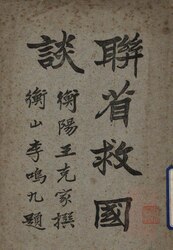 聯省救國
談
衡陽王克家撰
衡山李鳴九題